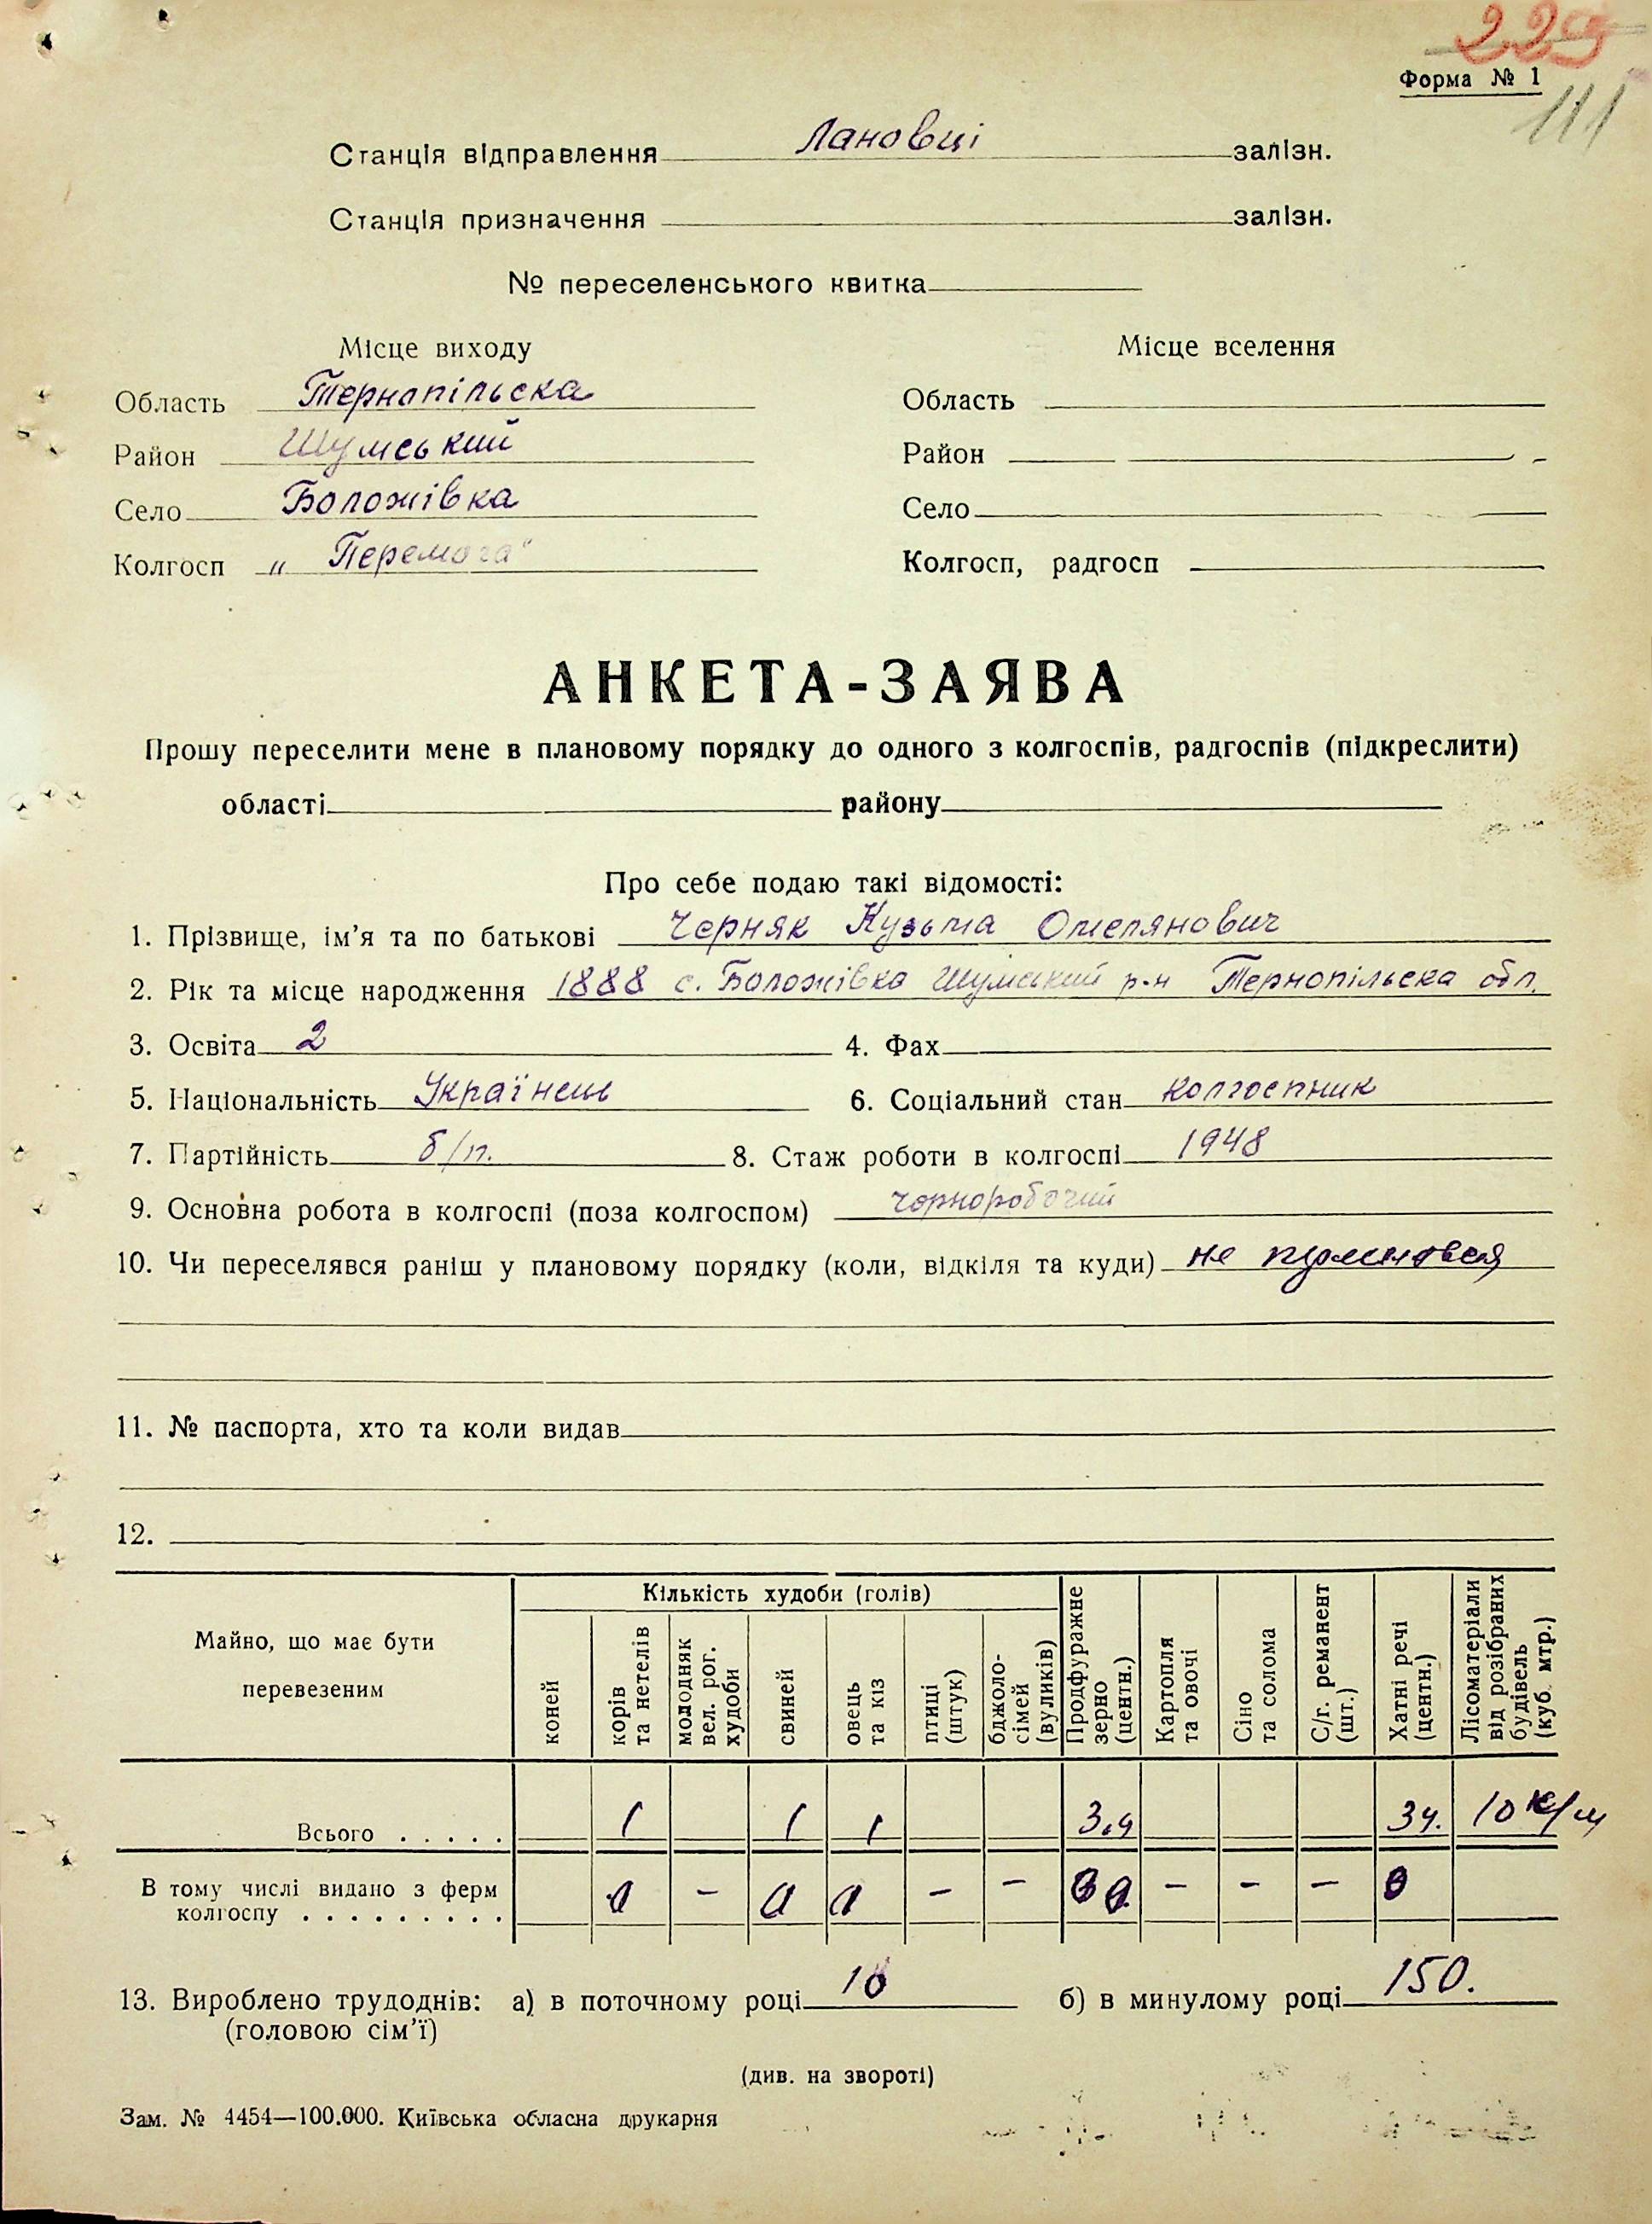 229
Форма № 1
111
Станція відправлення Лановці залізн.
Станція призначення залізн.
№ переселенського квитка
Місце виходу
Місце вселення
Область Тернопільска
Область
Район Шумський
Район
Село Боложівка
Село
Колгосп „Перемога"
Колгосп, радгосп
АНКЕТА-ЗАЯВА
Прошу переселити мене в плановому порядку до одного з колгоспів, радгоспів (підкреслити)
області району
Про себе подаю такі відомості:
1. Прізвище, ім'я та по батькові Черняк Кузьма Омелянович
2. Рік та місце народження 1888 с. Боложівка Шумський р-н Тернопільска обл.
3. Освіта 2 4. Фах
5. Національність Українець 6. Соціальний стан колгоспник
7. Партійність б/п. 8. Стаж роботи в колгоспі 1948
9. Основна робота в колгоспі (поза колгоспом) чорноробочий
10. Чи переселявся раніш у плановому порядку (коли, відкіля та куди) не
11. № паспорта, хто та коли видав
12.
Майно, що має бути перевезеним
Кількість худоби (голів)
коней
корів та нетелів
молодняк вел. рог. худоби
свиней
овець та кіз
птиці (штук)
бджоло-сімей (вуликів)
Продфуражне зерно (центн.)
Картопля та овочі
Сіно та солома
С/г. реманент (шт.)
Хатні речі (центн.)
Лісоматеріали від розібраних будівель (куб. мтр.)
Всього . . . . . 1 1 1 3.ч 3ч. 10 к/м
В тому числі видано з ферм
колгоспу . . . . . . . . . – – – – – –
13. Вироблено трудоднів: а) в поточному році 10 б) в минулому році 150.
(головою сім'ї)
(див. на звороті)
Зам. № 4454—100.000. Київська обласна друкарня